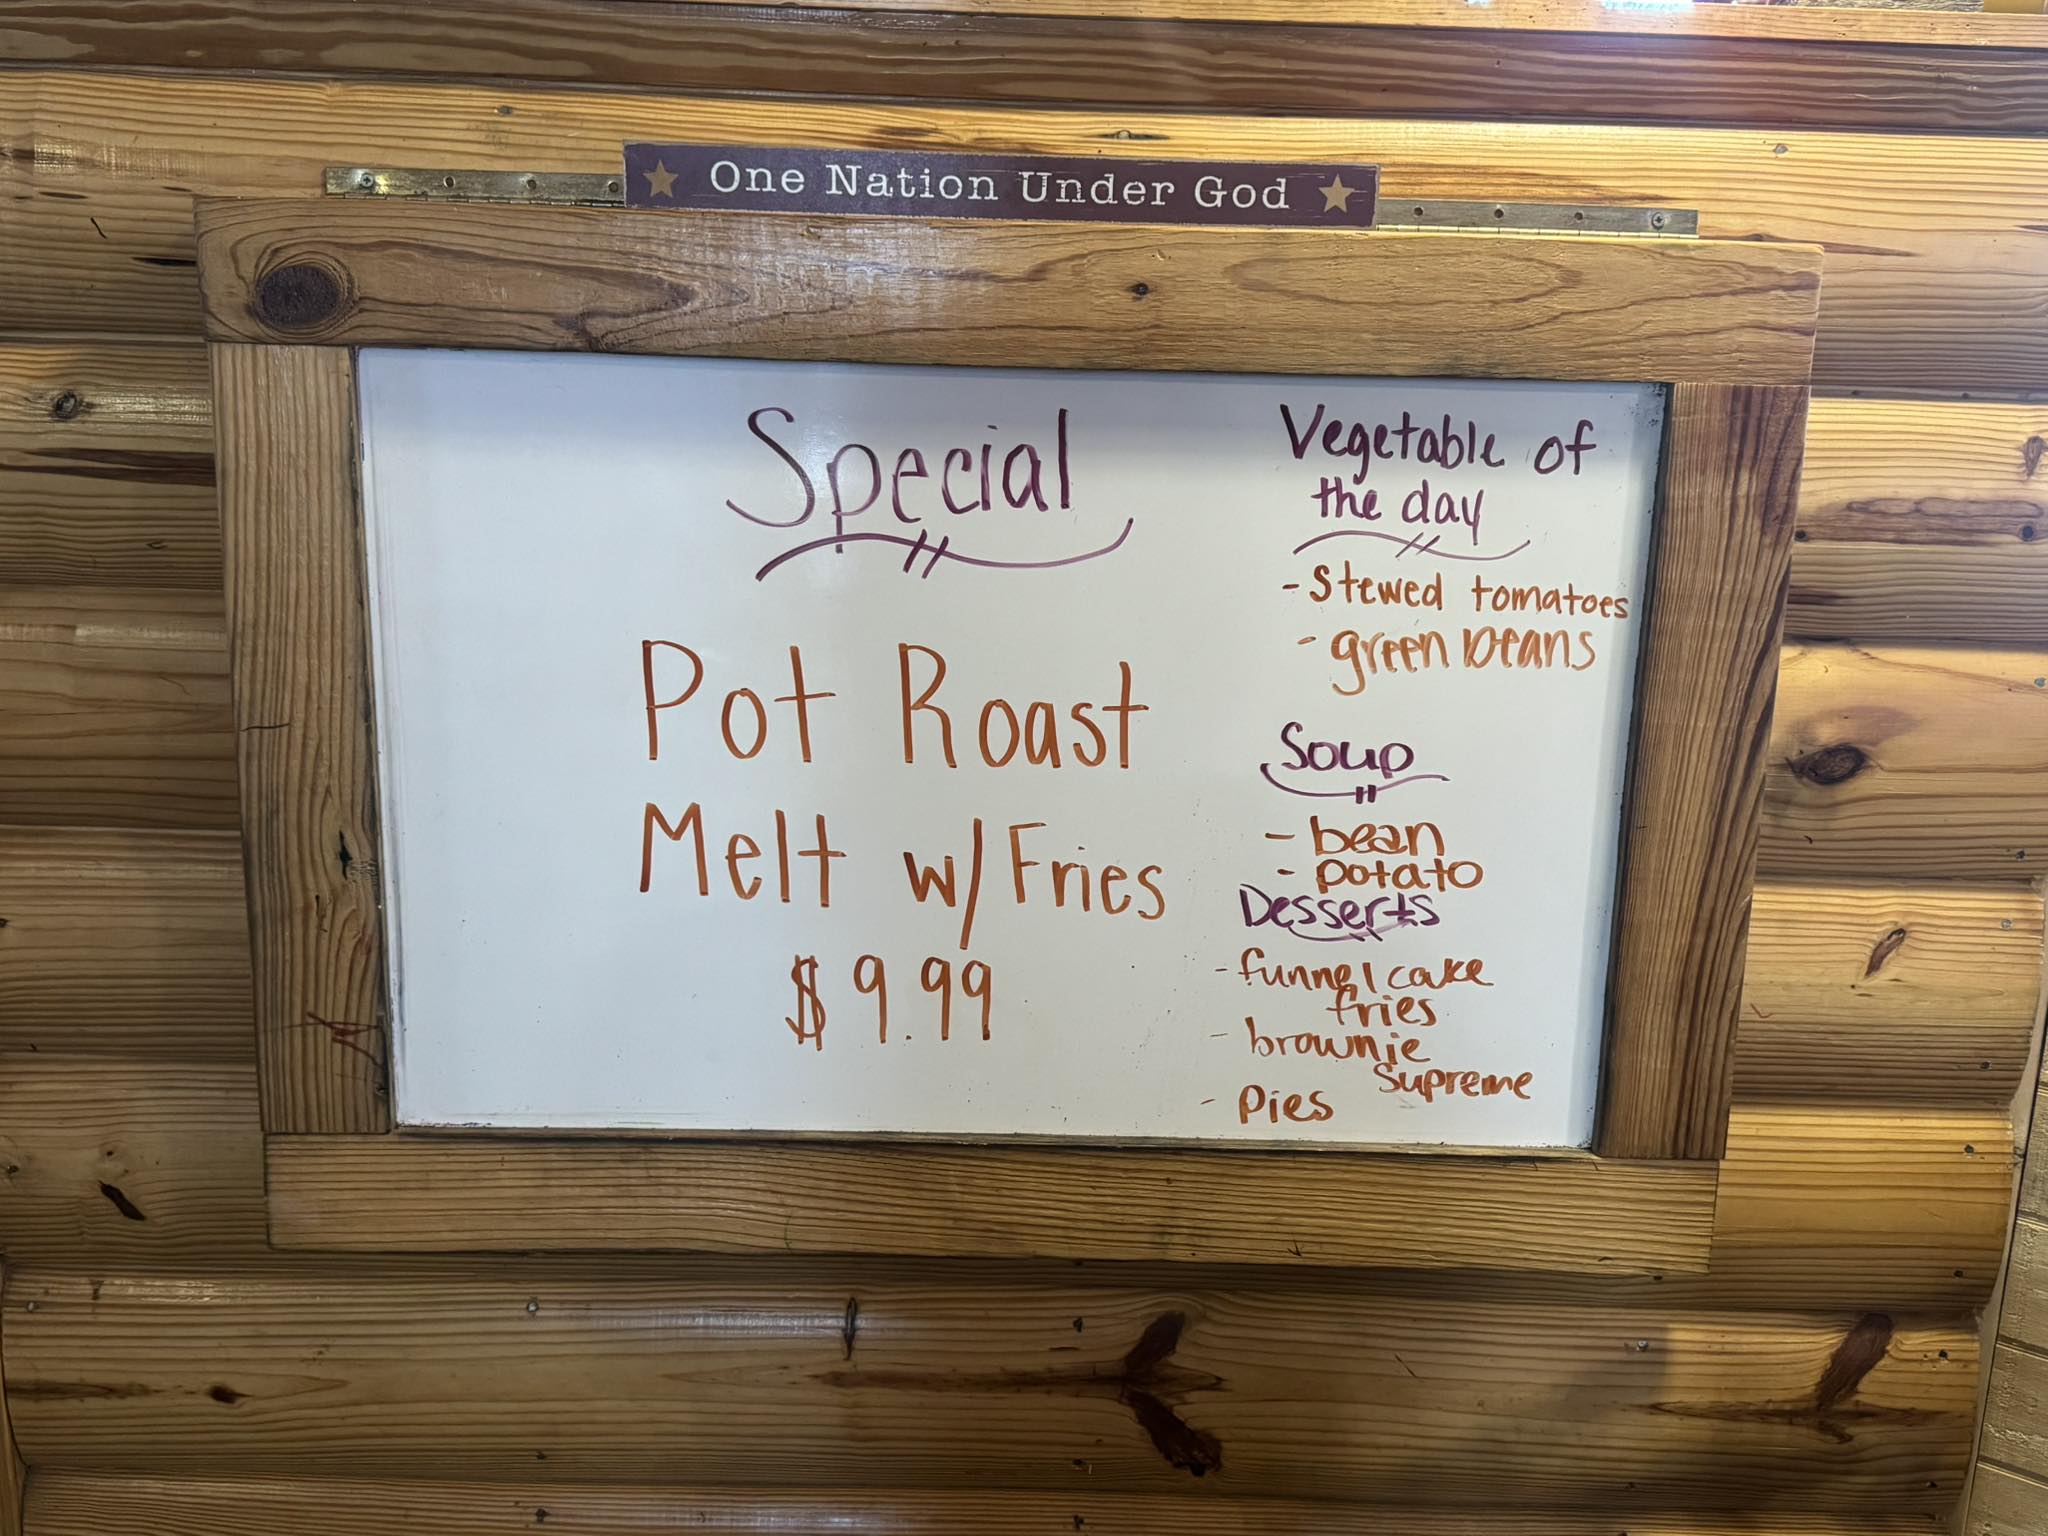 One Nation Under God
Special
Pot Roast
Melt w/ Fries
$9.99
Vegetable of
the day
- Stewed tomatoes
- green beans
Soup
- bean
- potato
Desserts
- funnel cake
fries
- brownie
Supreme
- Pies